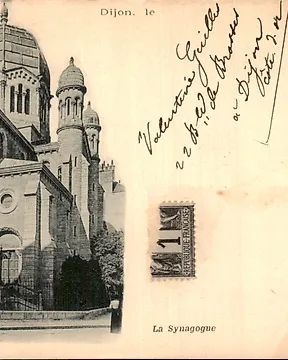 Dijon, le
Valentine Guielles
22 Bd de Brosses
à Dijon
Côte d'or
1
REPUBLIQUE FRANÇAISE
La Synagogue